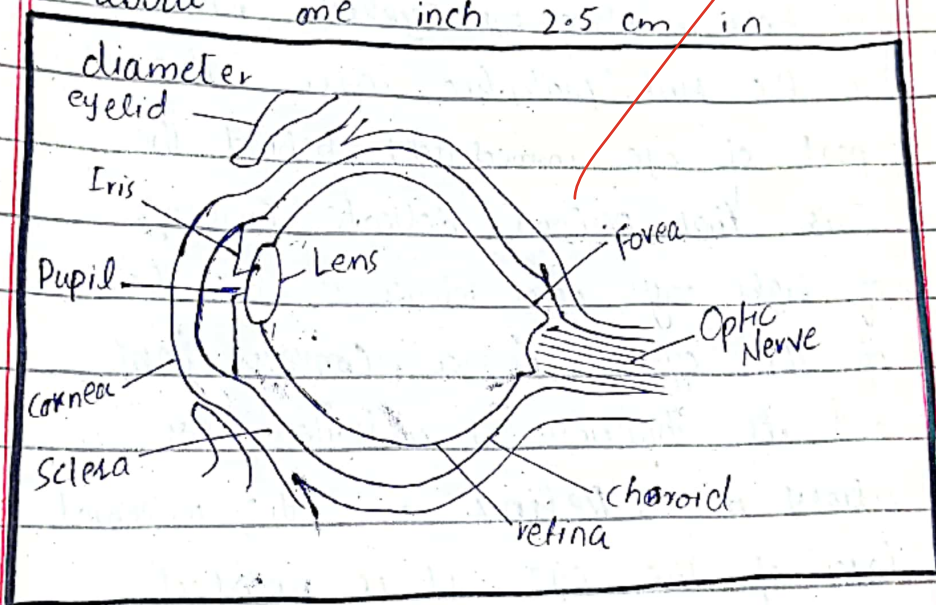 one inch 2.5 cm in
diameter
eyelid
Iris
Lens
Fovea
Pupil
Optic
Nerve
Cornea
Sclera
choroid
retina